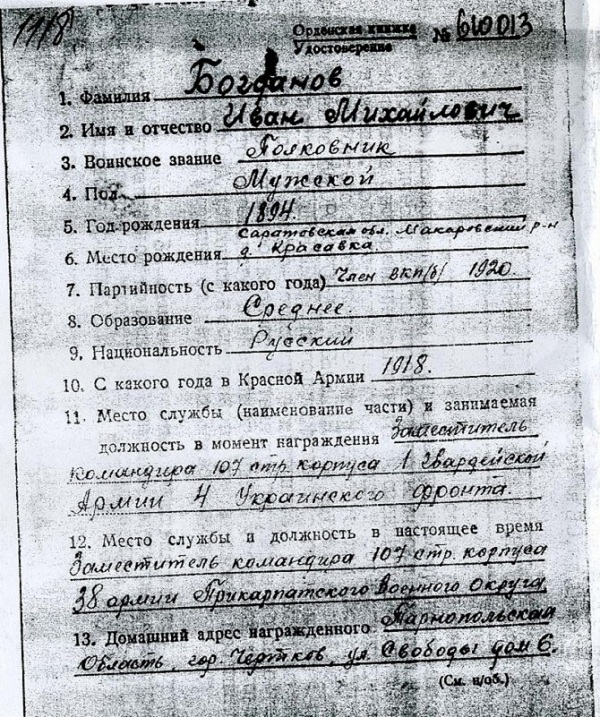 1118
Орденская книжка
Удостоверение № 610013
1. Фамилия Богданов
2. Имя и отчество Иван Михайлович
3. Воинское звание Полковник
4. Пол Мужской
5. Год рождения 1894
Саратовская обл. Макаровский р-н
6. Место рождения д. Красавка
7. Партийность (с какого года) Член ВКП/б/ 1920.
8. Образование Среднее.
9. Национальность Русский
10. С какого года в Красной Армии 1918.
11. Место службы (наименование части) и занимаемая
должность в момент награждения Заместитель
командира 107 стр. корпуса 1 Гвардейской
Армии 4 Украинского фронта.
12. Место службы и должность в настоящее время
Заместитель командира 107 стр. корпуса
38 армии Прикарпатского Военного Округа
13. Домашний адрес награжденного Тарнопольская
Область, гор. Чертков, ул. Свободы дом 6.
(См. н/об.)